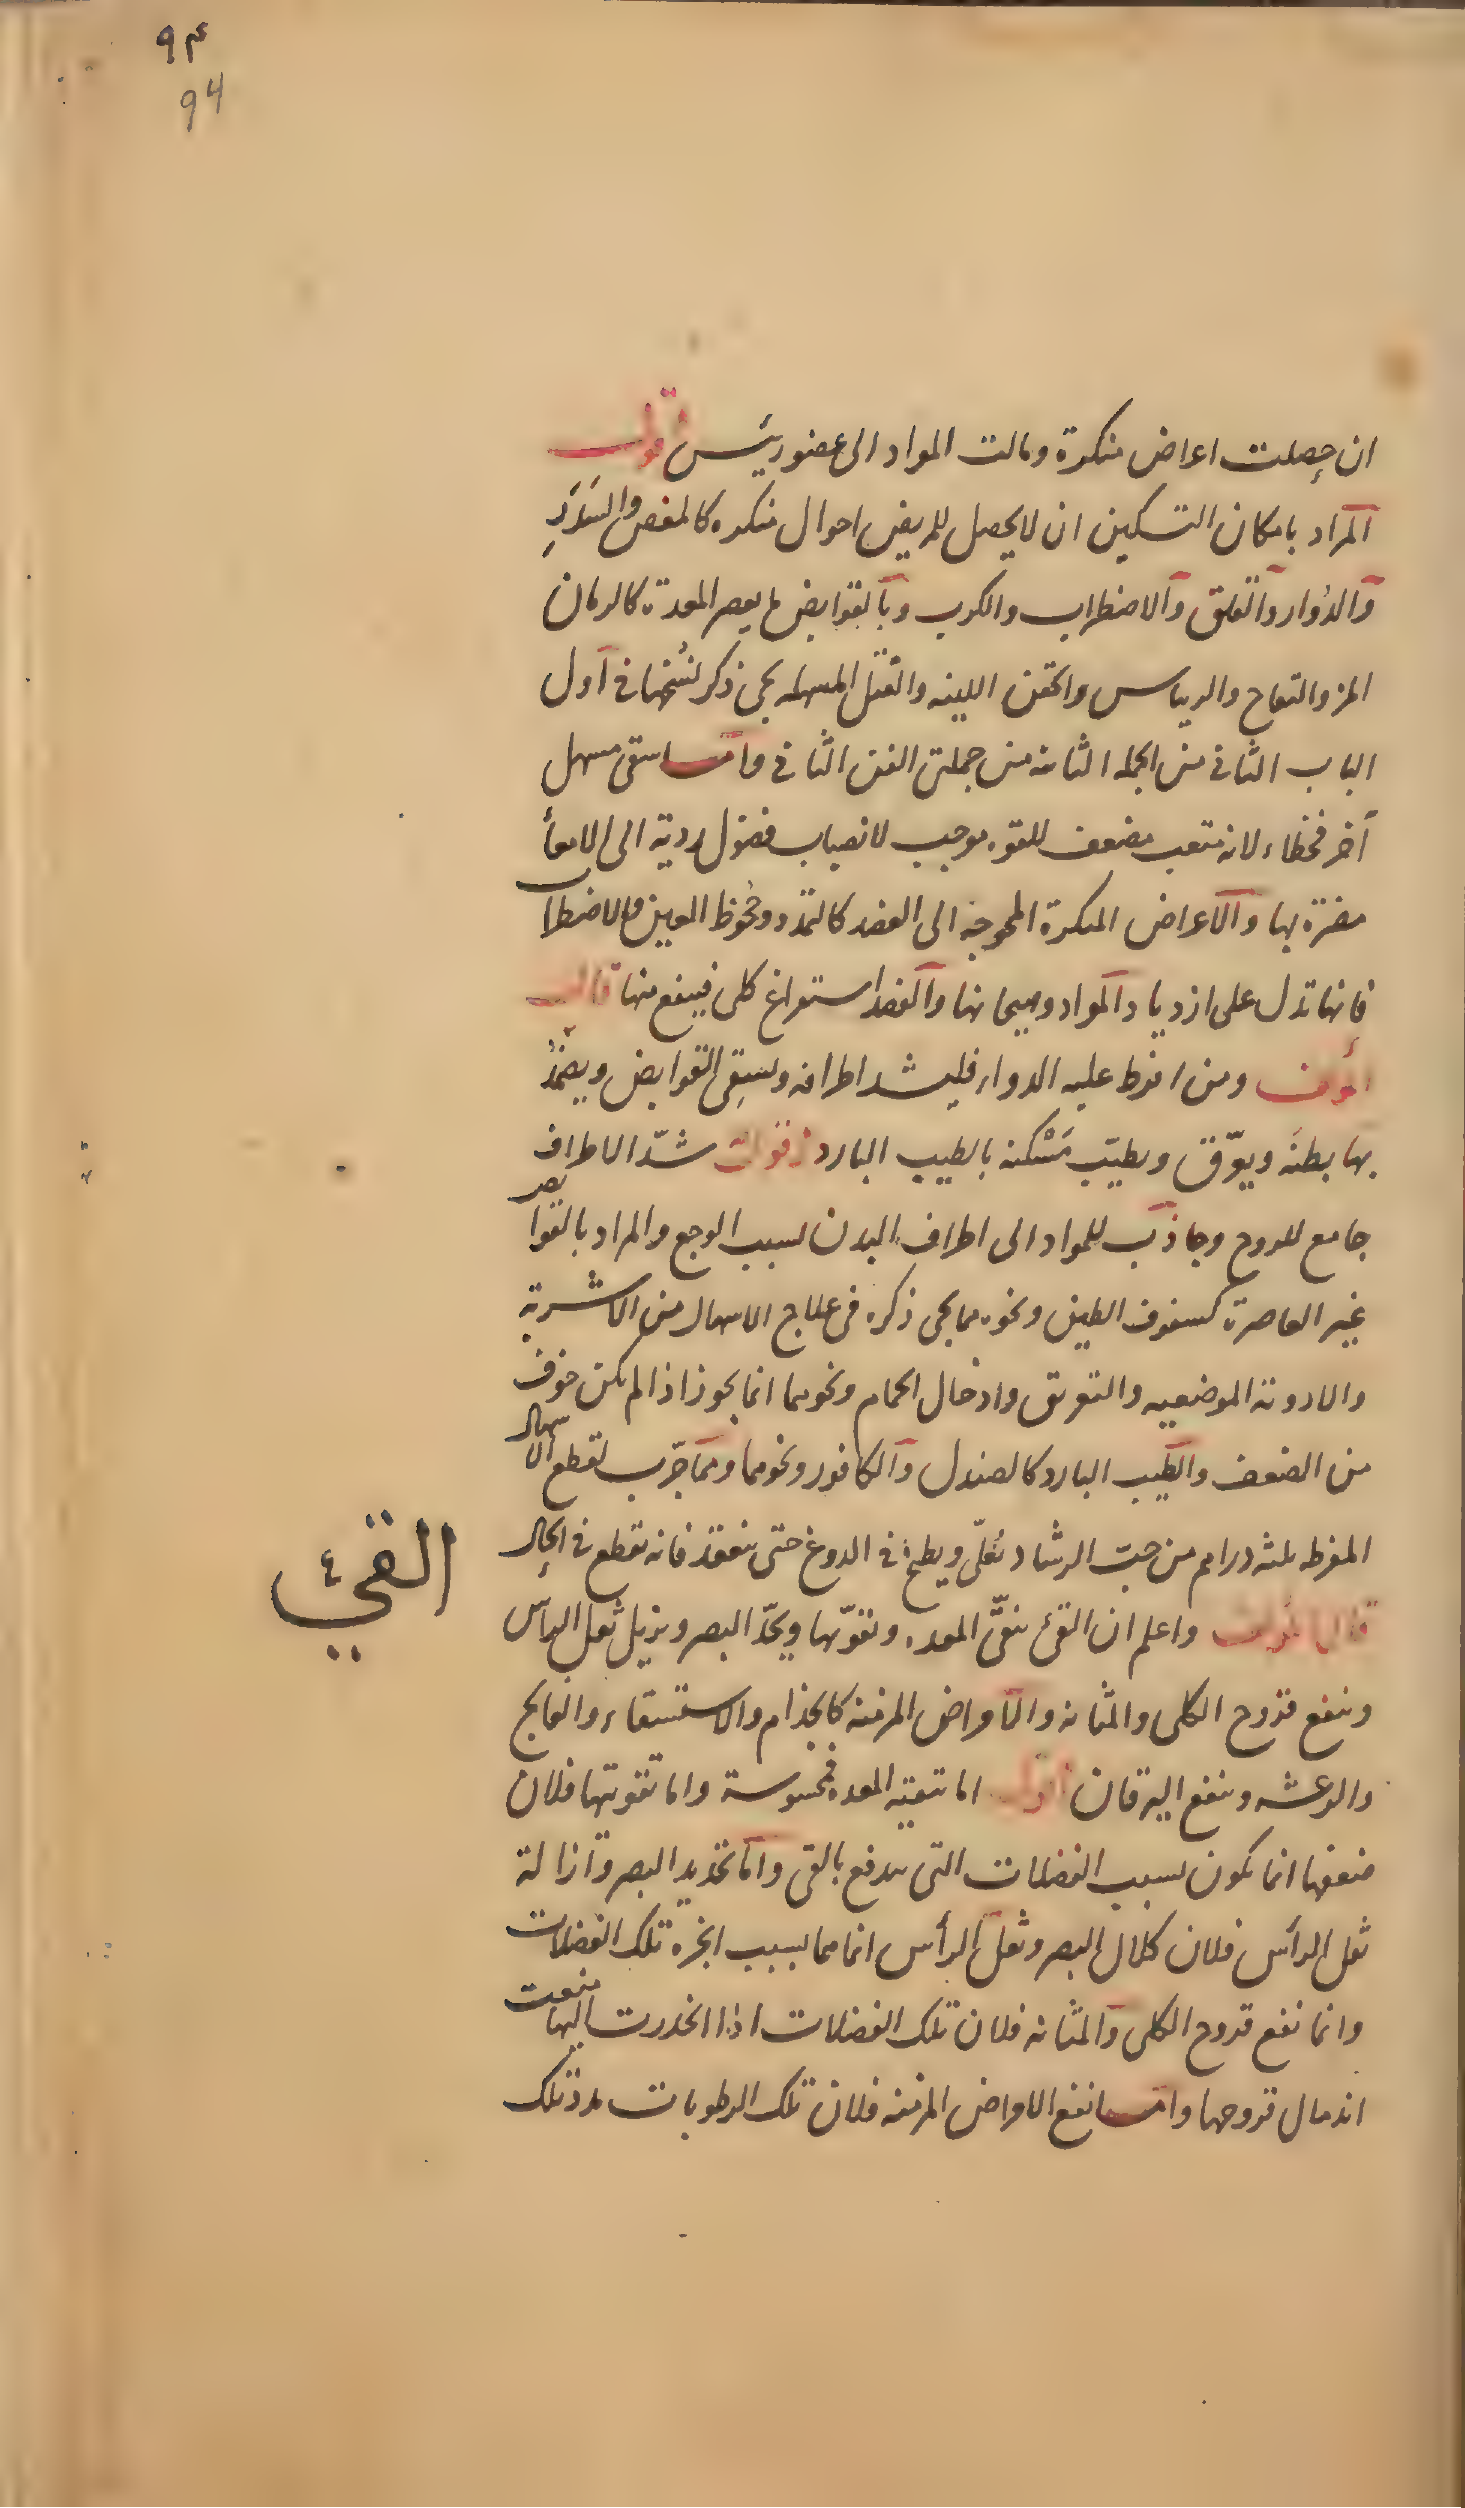 ۹۴
94
ان حصلت اعراض منكرة ومالت المواد الى عضو رئيس اقول
المراد بامكان التسكين ان لا يحصل للمريض احوال منكره كالمغص والسَدَرِ
والدُوار والقلق والاضطراب والكرب وبالقوابض ما يعصر المعدة كالرمان
المز والتفاح والريباس والحقن اللينه والفتل المسهله يجئ ذكر نُسَخها فى اول
الباب الثانى من الجمله الثانيه من جملتى الفن الثانى واما سقى مسهل
آخر فخطاء لانه متعب مضعف للقوه موجب لانصباب فضول ردية الى الامعأ
مضرة بها والاعراض المنكرة المحوجة الى الفصد كالتمدد وجُحوظ العين والاضطراب
فانها تدل على ازدياد المواد وهيجانها والفصد استفراغ كلى فينفع منها قال
المؤلف ومن افرط عليه الدواء فليشد اطرافه وليسقى القوابض ويضمَّدُ
بها بطنه ويعرّق ويطيّب مَسْكنه بالطيب البارد اقول شدّ الاطراف
جامع للروح وجاذب للمواد الى اطراف البدن لسبب الوجع والمراد بالقوابض
غير العاصرة كسفوف الطين ونحوه مما يجى ذكره فى علاج الاسهال من الاشربة
والادوية الموضعيه والتعريق وادخال الحمام ونحوهما انما يجوز اذا لم يكن خوف
من الضعف والطيب البارد كالصندل والكافور ونحوهما ومما جرّب لقطع الاسهال
المفرطه ثلثه دراهم من حب الرشاد تُقلّى ويطبخ فى الدوغ حتى ينعقد فانه تقطع فى الحال
قال المؤلف واعلم ان القئ ينقّى المعده وتقوّيها ويحدّ البصر ويزيل ثقل الرأس
وينفع قروح الكلى والمثانه والامراض المزمنه كالجذام والاستسقاء والفالج
والرعشه وينفع اليرقان اقول اما تنقية المعده فمحسوسة واما تقويتها فلان
ضعفها انما يكون لسبب الفضلات التى يندفع بالقى واما تحديد البصر وازالة
ثقل الرأس فلان كلال البصر وثقل الرأس انما هما بسبب ابخره تلك الفضلات
وانما نفع قروح الكلى والمثانه فلان تلك الفضلات اذا انحدرت اليها منعت
اندمال قروحها واما نفع الامراض المزمنه فلان تلك الرطوبات مدد تلك
القيء